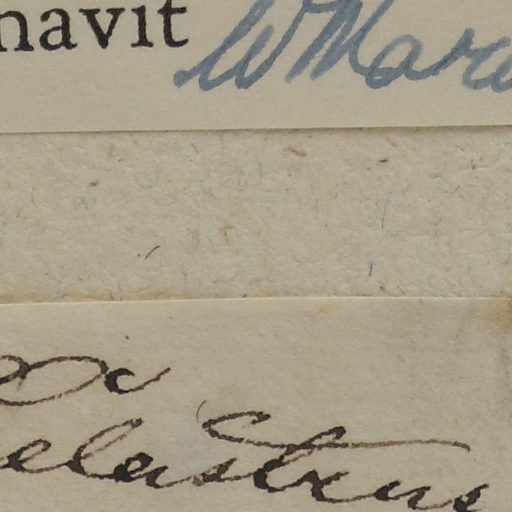 navit W Marc
ex
elastrus